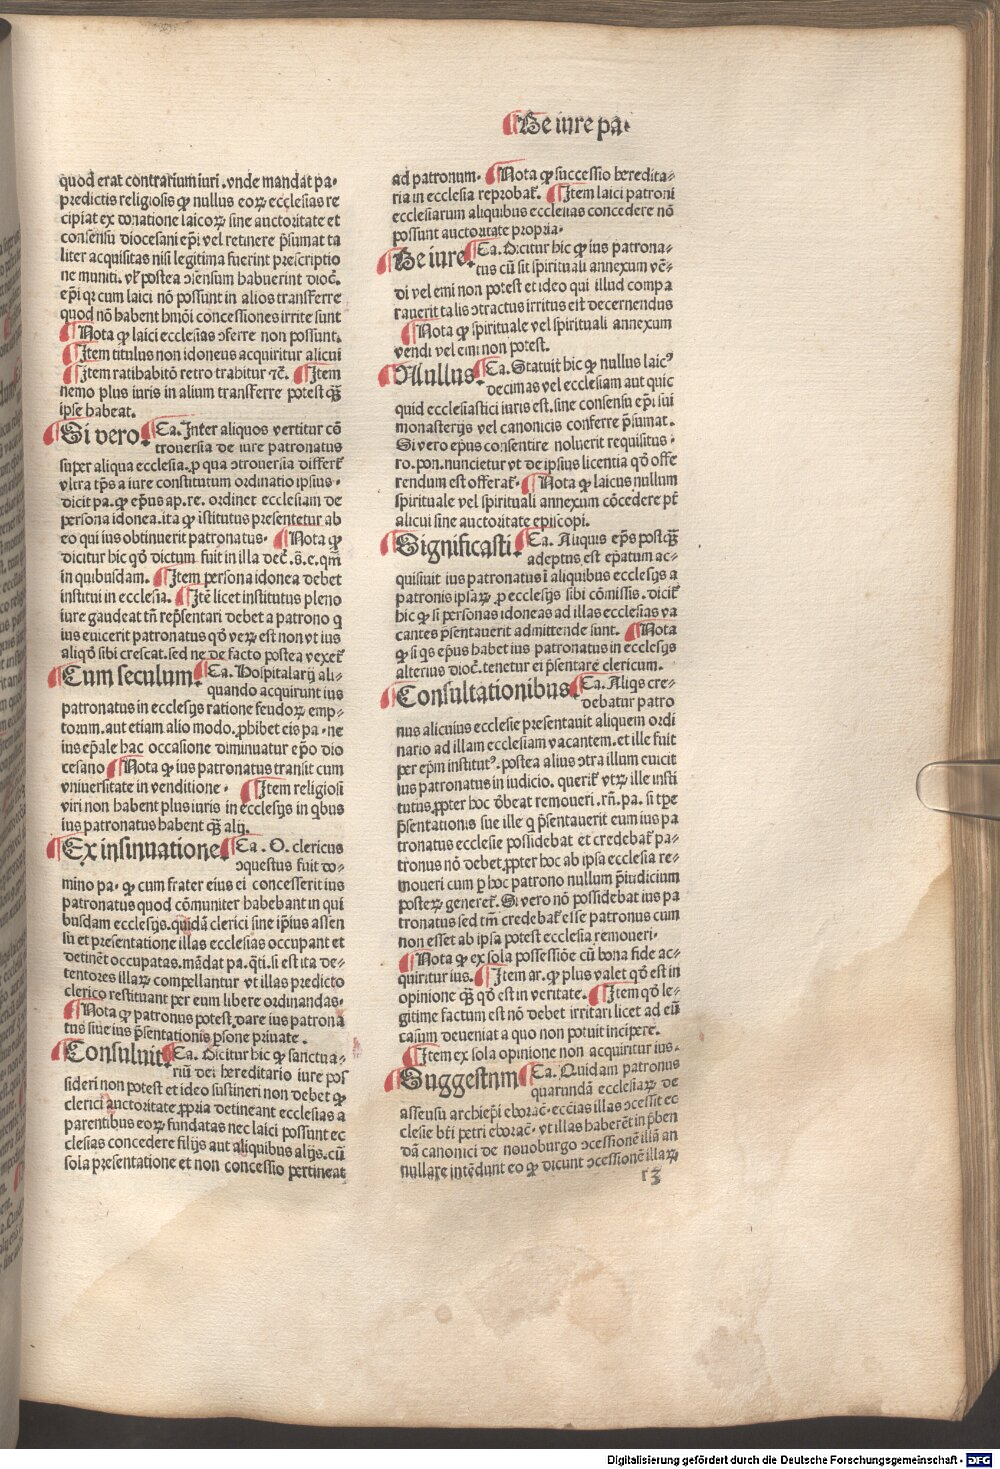 ¶De iure pa.
quod erat contrarium iuri .vnde mandat pa.
predictis religiosis ꝙ nullus eoꝝ ecclesias re
cipiat ex donatione laicoꝝ sine auctoritate et
consensu diocesani ep̄i vel retinere p̄sumat ta
liter acquisitas nisi legitima fuerint prescriptio
ne muniti. vl̓ postea ↄsensum habuerint dioc̄.
ep̄i qꝛ cum laici nō possunt in alios transferre
quod nō habent hmōi concessiones irrite sunt
¶Nota ꝙ laici ecclesias ↄferre non possunt.
¶Item titulus non idoneus acquiritur alicui
¶Item ratihabitō retro trahitur ⁊c̄. ¶Item
nemo plus iuris in alium transferre potest qȝ̄
ipse habeat.
¶Si vero. ¶Ca. Inter aliquos vertitur cō
trouersia de iure patronatus
super aliqua ecclesia. ꝓ qua ↄtrouersia differt̄
vltra tp̄s a iure constitutum ordinatio ipsius.
dicit pa. ꝙ ep̄us ap. re. ordinet ecclesiam de
persona idonea. ita ꝙ īstitutus presentetur ab
eo qui ius obtinuerit patronatus. ¶Nota ꝙ
dicitur hic qō dictum fuit in illa dec̄. s̄. e. qm̄
in quibusdam. ¶Item persona idonea debet
institui in ecclesia. ¶Itē licet institutus pleno
iure gaudeat tn̄ rep̄sentari debet a patrono q
ius euicerit patronatus qō veꝝ est non vt ius
aliqō sibi crescat. sed ne de facto postea vexet̄
¶Cum seculum. ¶Ca. Hospitalarij ali-
quando acquirunt ius
patronatus in ecclesijs ratione feudoꝝ emp-
torum. aut etiam alio modo. ꝓhibet eis pa. ne
ius ep̄ale hac occasione diminuatur ep̄o dio
cesano ¶Nota ꝙ ius patronatus transit cum
vniuersitate in venditione. ¶Item religiosi
viri non habent plus iuris in ecclesijs in qbus
ius patronatus habent qȝ̄ alij.
¶Ex insinuatione. ¶Ca. O. clericus
ↄquestus fuit do-
mino pa. ꝙ cum frater eius ei concesserit ius
patronatus quod cōmuniter habebant in qui
busdam ecclesijs. quidā clerici sine ip̄ius assen
su et presentatione illas ecclesias occupant et
detinēt occupatas. mādat pa. qti. si est ita de-
tentores illaꝝ compellantur vt illas predicto
clerico restituant per eum libere ordinandas.
¶Nota ꝙ patronus potest dare ius patrona
tus siue ius p̄sentationis ꝑsone priuate.
¶Consuluit ¶Ca. Dicitur hic ꝙ sanctua-
riū dei hereditario iure pos
sideri non potest et ideo sustineri non debet ꝙ
clerici auctoritate ꝓpria detineant ecclesias a
parentibus eoꝝ fundatas nec laici possunt ec
clesias concedere filijs aut aliquibus alijs. cū
sola presentatione et non concessio pertineat
ad patronum. ¶Nota ꝙ successio heredita-
ria in ecclesia reprobat̄. ¶Item laici patroni
ecclesiarum aliquibus ecclesias concedere nō
possunt auctoritate propria.
¶De iure. ¶Ca. Dicitur hic ꝙ ius patrona-
tus cū sit spirituali annexum vē-
di vel emi non potest et ideo qui illud compa
rauerit talis ↄtractus irritus erit decernendus
¶Nota ꝙ spirituale vel spirituali annexum
vendi vel emi non potest.
¶Nullus. ¶Ca. Statuit hic ꝙ nullus laicꝰ
decimas vel ecclesiam aut quic
quid ecclesiastici iuris est. sine consensu ep̄i sui
monasterijs vel canonicis conferre p̄sumat.
Si vero ep̄us consentire noluerit requisitus.
ro. pon. nuncietur vt de ipsius licentia qō offe
rendum est offerat̄. ¶Nota ꝙ laicus nullum
spirituale vel spirituali annexum cōcedere pt̄
alicui sine auctoritate episcopi.
¶Significasti. ¶Ca. Aliquis ep̄s postqȝ̄
adeptus est ep̄atum ac-
quisiuit ius patronatus ī aliquibus ecclesijs a
patronis ipsaꝝ. ꝓ ecclesijs sibi cōmissis. dicit̄
hic ꝙ si personas idoneas ad illas ecclesias va
cantes p̄sentauerit admittende sunt. ¶Nota
ꝙ si qs ep̄us habet ius patronatus in ecclesijs
alterius dioc̄. tenetur ei p̄sentare clericum.
¶Consultationibus ¶Ca. Aliqs cre-
debatur patro
nus alicuius ecclesie presentauit aliquem ordi
nario ad illam ecclesiam vacantem. et ille fuit
per ep̄m institutꝰ. postea alius ↄtra illum euicit
ius patronatus in iudicio. querit̄ vtꝝ ille insti
tutus ꝓpter hoc debeat remoueri. rn̄. pa. si tp̄e
p̄sentationis sue ille q p̄sentauerit eum ius pa
tronatus ecclesie possidebat et credebat̄ pa-
tronus nō debet ꝓpter hoc ab ipsa ecclesia re-
moueri cum ꝑ hoc patrono nullum p̄iudicium
posteꝝ generet̄. Si vero nō possidebat ius pa
tronatus sed tm̄ credebat̄ esse patronus cum
non esset ab ipsa potest ecclesia remoueri.
¶Nota ꝙ ex sola possessiōe cū bona fide ac-
quiritur ius. ¶Item ar. ꝙ plus valet qō est in
opinione qȝ̄ qō est in veritate. ¶Item qō le-
gitime factum est nō debet irritari licet ad eū
casum deueniat a quo non potuit incipere.
¶Item ex sola opinione non acquiritur ius.
¶Suggestum ¶Ca. Quidam patronus
quarundā ecclesiaꝝ de
assensu archiep̄i eborac̄. eccias illas ↄcessit ec
clesie bt̄i petri eborac̄. vt illas haberēt in p̄ben
dā canonici de nouoburgo ↄcessionē illā an
nullare intēdunt eo ꝙ dicunt ↄcessionē illaꝝ
r3
Digitalisierung gefördert durch die Deutsche Forschungsgemeinschaft - DFG